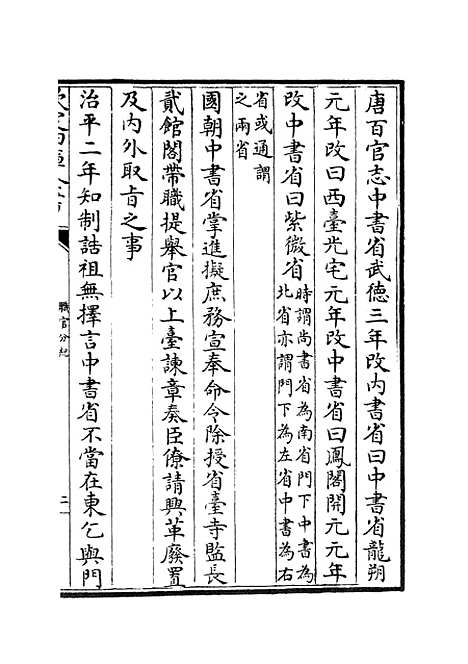 唐百官志中書省武德三年改内書省曰中書省龍朔
元年改曰西臺光宅元年改中書省曰鳳閣開元元年
改中書省曰紫微省時謂尚書省為南省門下中書為
北省亦謂門下為左省中書為右
省或通謂
之兩省
國朝中書省掌進擬庶務宣奉命令除授省臺寺監長
貳館閣帶職提舉官以上臺諫章奏臣僚請興革廢置
及内外取㫖之事
治平二年知制誥祖無擇言中書省不當在東乞與門
欽定四庫全書
職官分紀
二